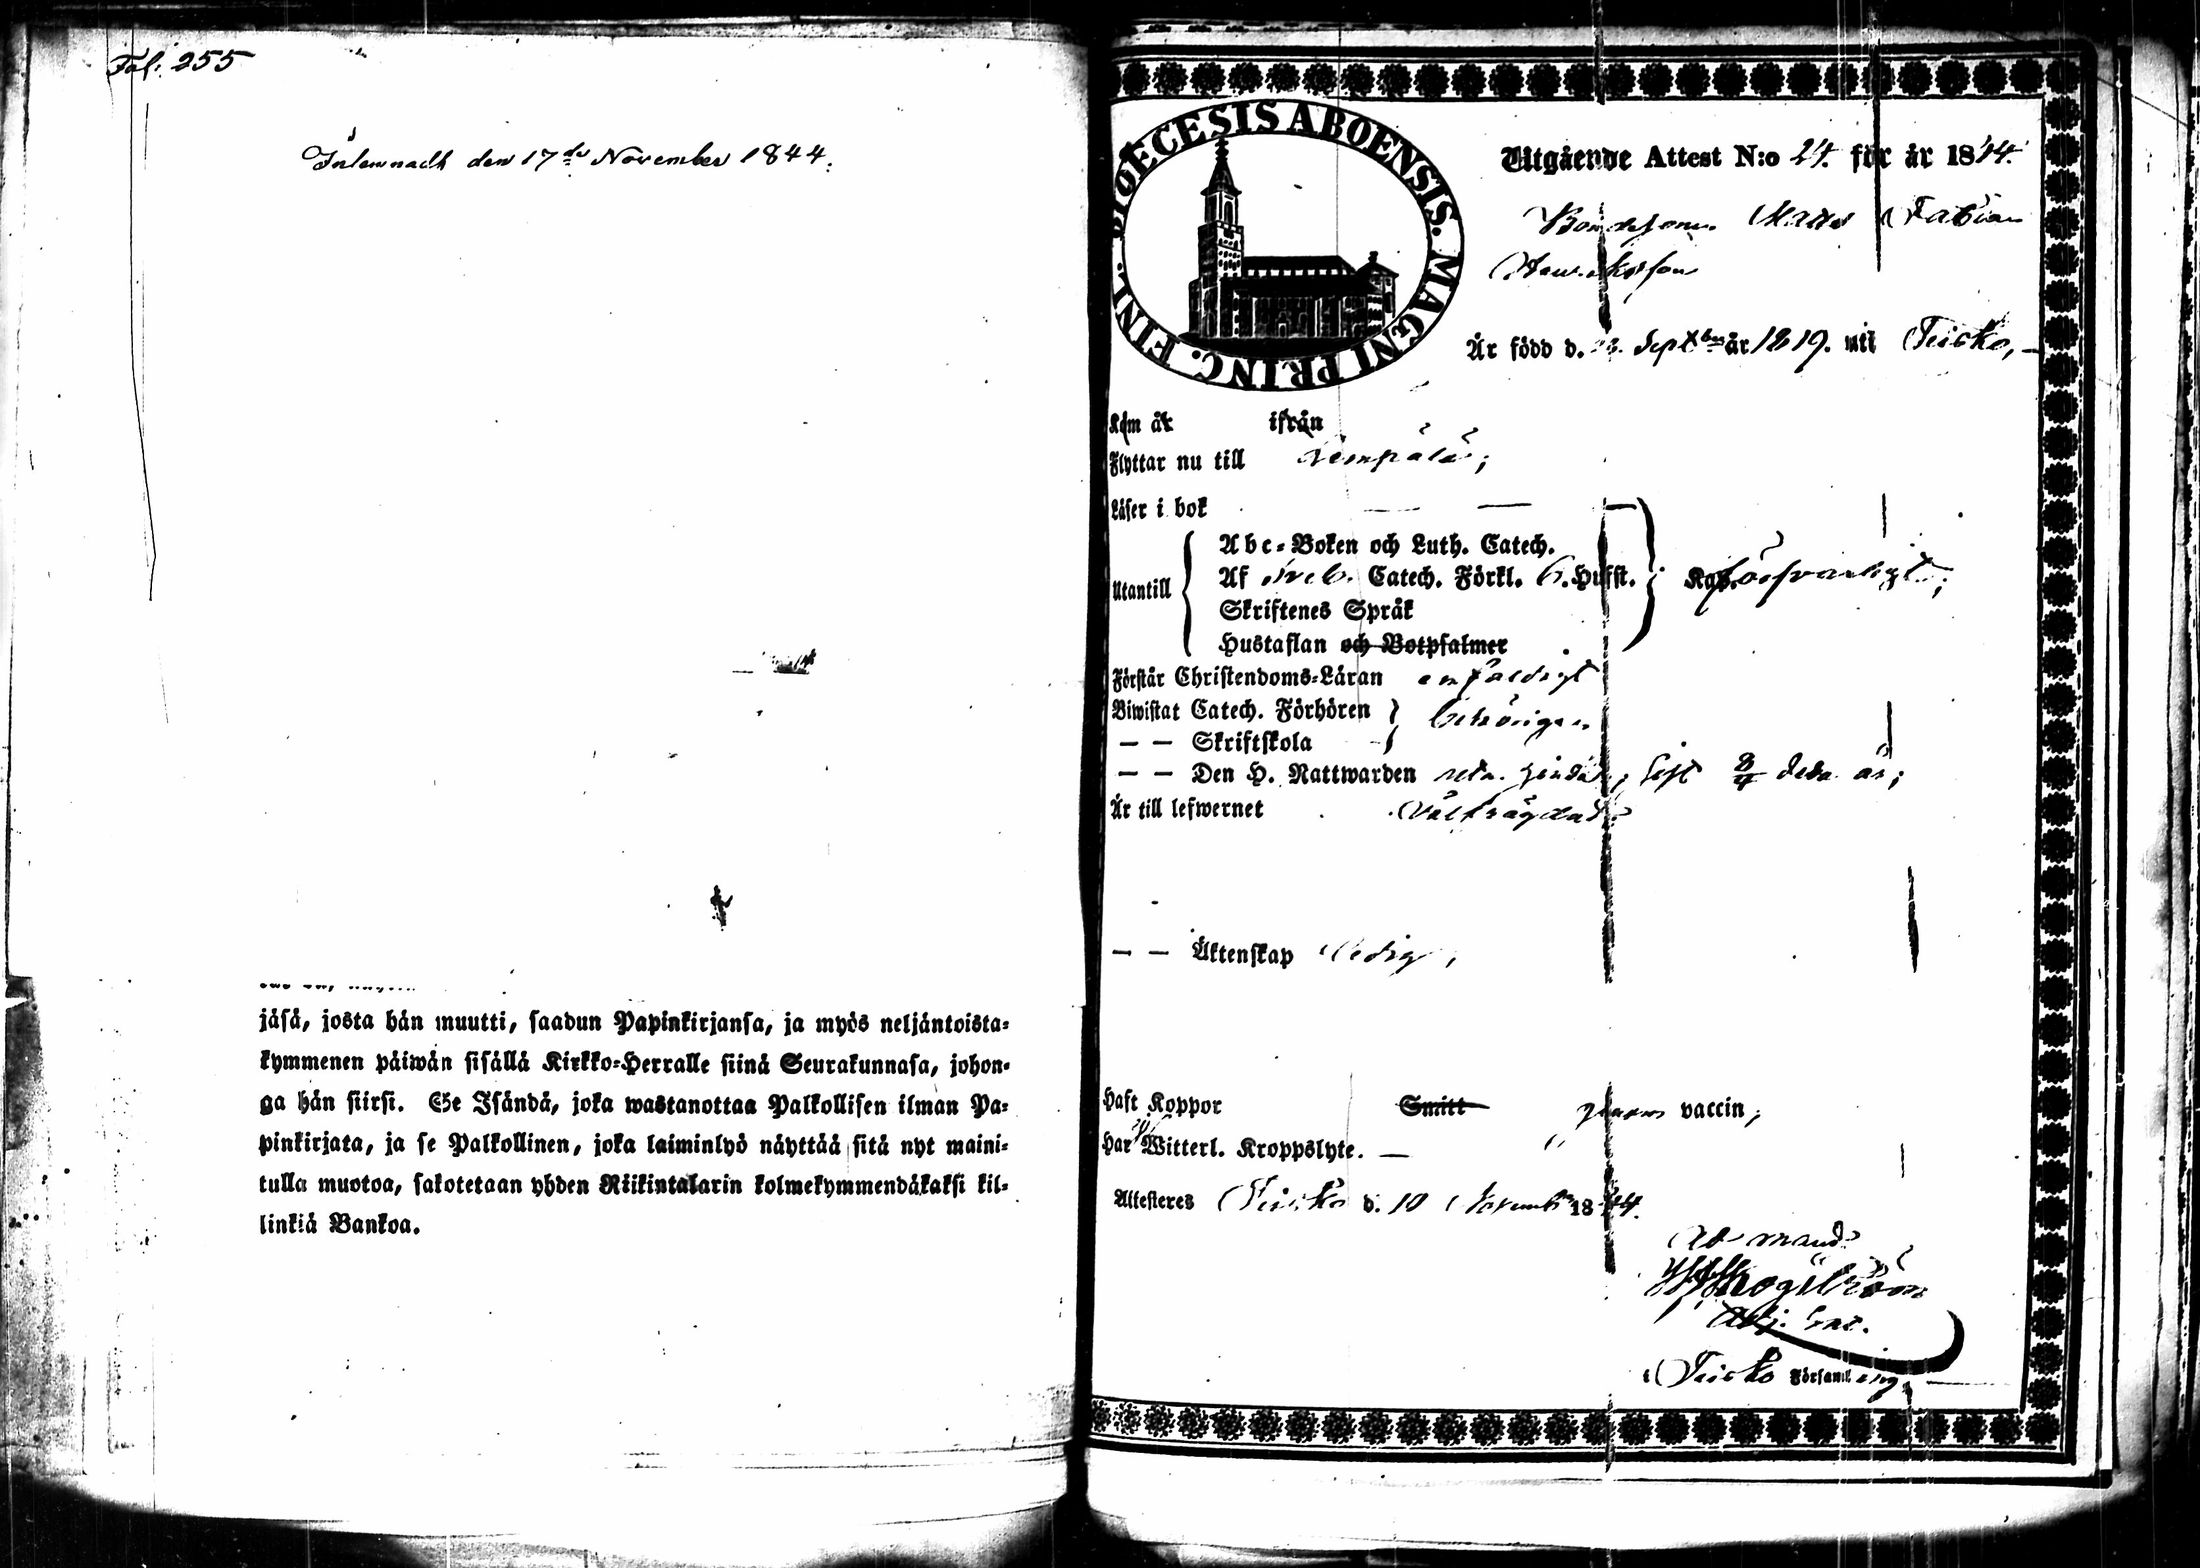 Fol. 255
Inlemnadt den 17de November 1844.
jäsä, josta hän muutti, saadun Papinkirjansa, ja myös neljäntoista-
kymmenen päiwän sisällä Kirkko-Herralle siinä Seurakunnasa, johon-
ga hän siirsi. Se Isändä, joka wastanottaa Palkollisen ilman Pa-
pinkirjata, ja se Palkollinen, joka laiminlyö näyttää sitä nyt maini-
tulla muotoa, sakotetaan yhden Riikintalarin kolmekymmendäkaksi kil-
linkiä Bankoa.
DIOECESIS ABOENSIS. MAGNI PRINC. FINL.
Utgående Attest N:o 24. för år 1844.
Bondesonen Matts Fabian
Henriksson
Är född d. Septber år 1819. uti Teisko,
Kom år ifrån
Flyttar nu till Lempälä;
Läser i bok
Utantill
Abc-Boken och Luth. Catech.
Af Sveb. Catech. Förkl. 6. Hufst.
Skriftenes Språk
Hustaflan och Botpsalmer
försvarligt;
Förstår Christendoms-Läran enfaldigt
Biwistat Catech. Förhören
— — Skriftskola
behörigen
— — Den H. Nattwarden sist 8/4 detta år;
Är till lefwernet välfrägdad;
— — Äktenskap ledig,
Haft Koppor Smitt genom vaccin;
Har Witterl. Kroppslyte. —
Attesteres Teisko d. 10 Novemb. 1844.
Ad mand.
Skogström
Adj. Sac.
i Teisko Församling.